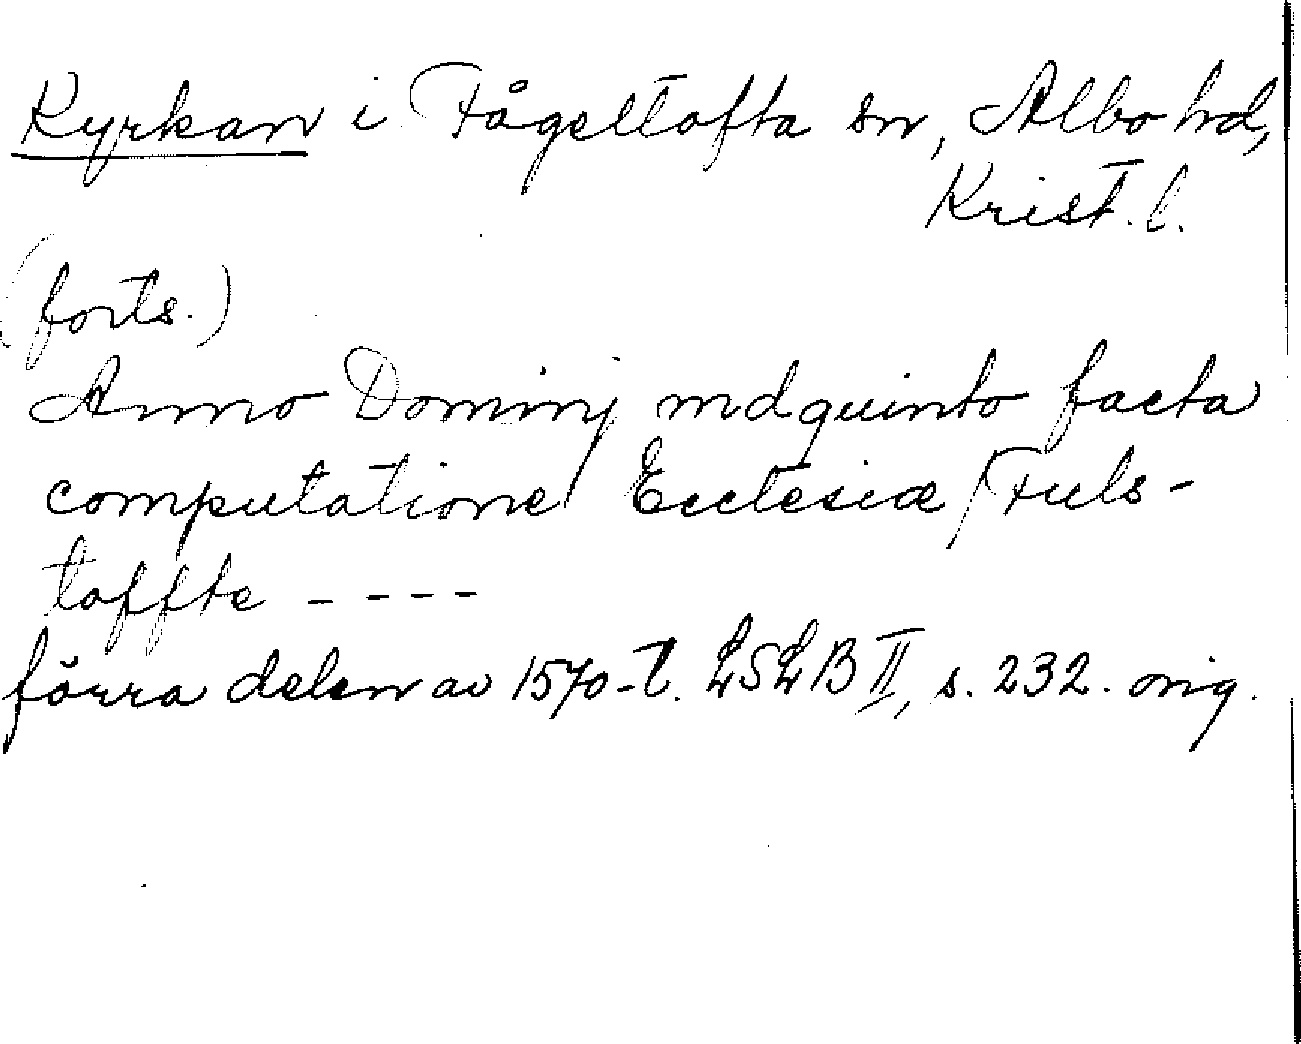 Kyrkan i Fågeltofta sn, Albo hd,
Krist. l.
(forts.)
Anno Dominj mdquinto facta
computatione Ecclesiæ Fuls-
toffte - - - -
förra delen av 1570-t. LSLB II, s. 232. orig.